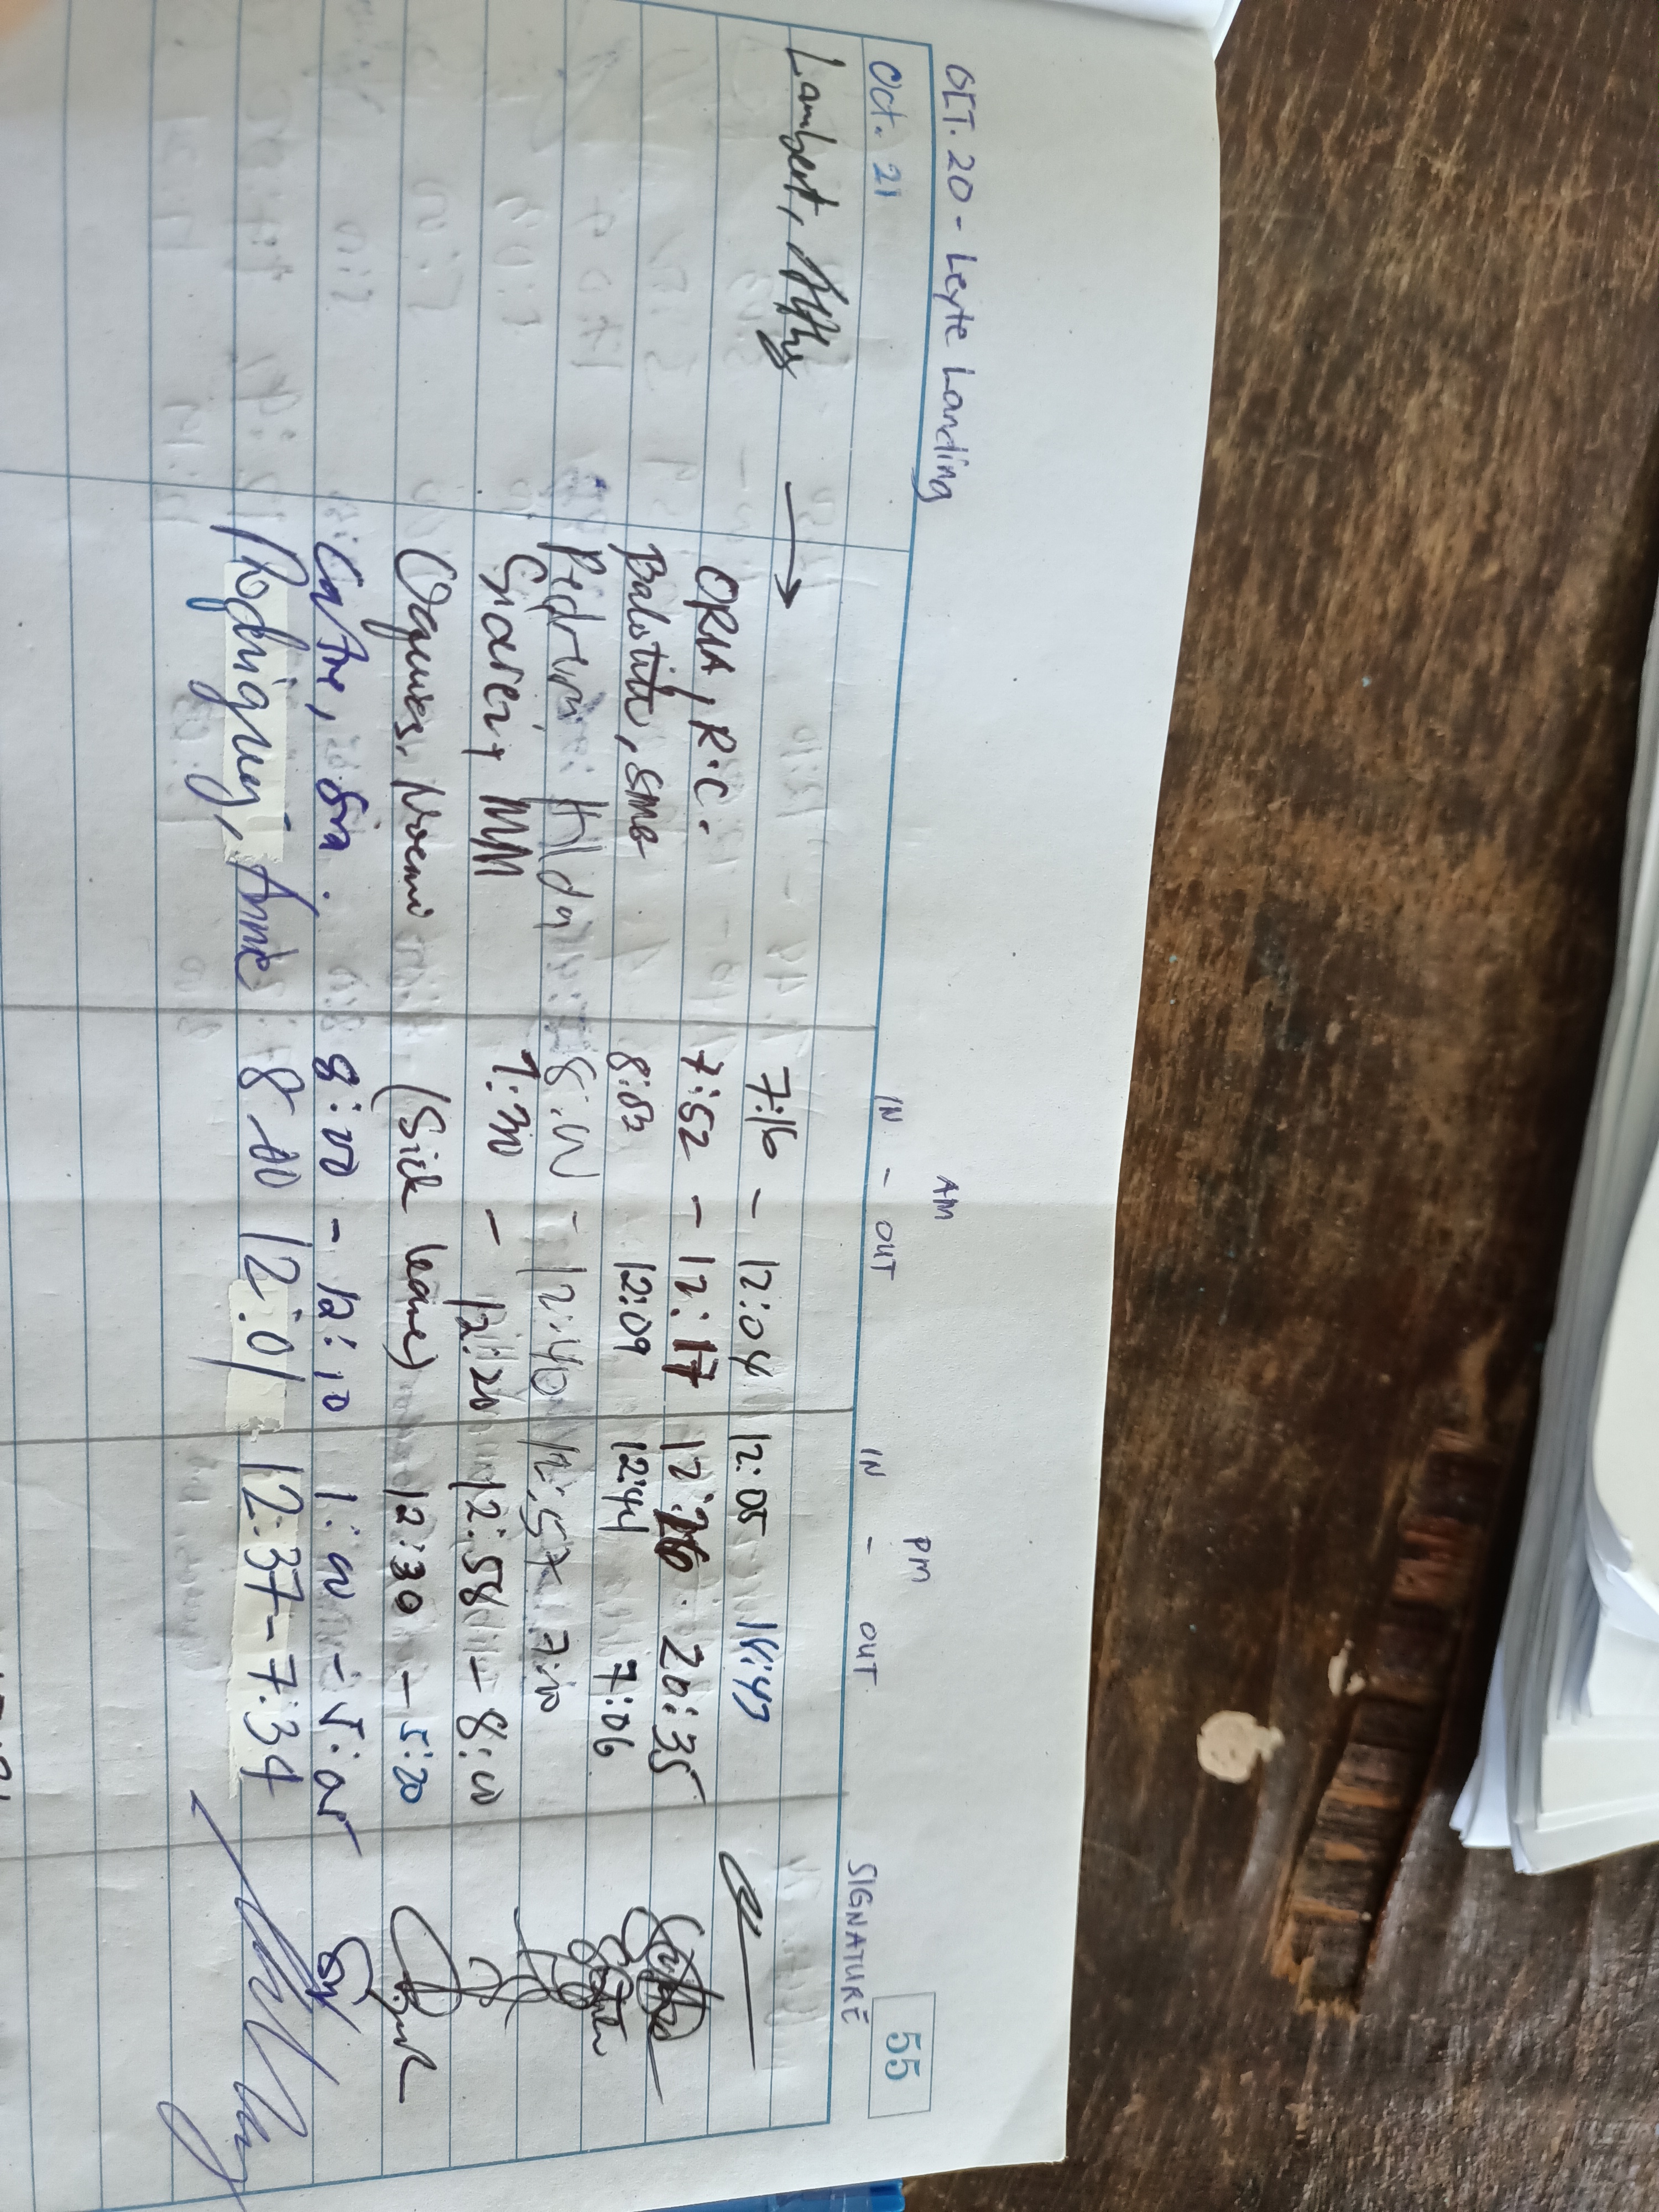 OCT. 20 - Leyte Landing
AM PM
55
Oct. 21 IN - OUT IN - OUT SIGNATURE
Lambert, → 7:16 - 12:04 12:05 18:47
ORIA, R.C. 7:52 - 12:17 12:26 20:35
Balotite, SMB 8:03 12:09 12:44 7:06
Hilda 12:40 12:57 7:10
MM 7:30 - 12:20 12:58 - 8:00
Noemi (Sick leave) 12:30 - 5:20
8:00 - 12:10 1:00 - 5:05
Rodriguez, Anne 8:00 12:01 12:37 - 7:34